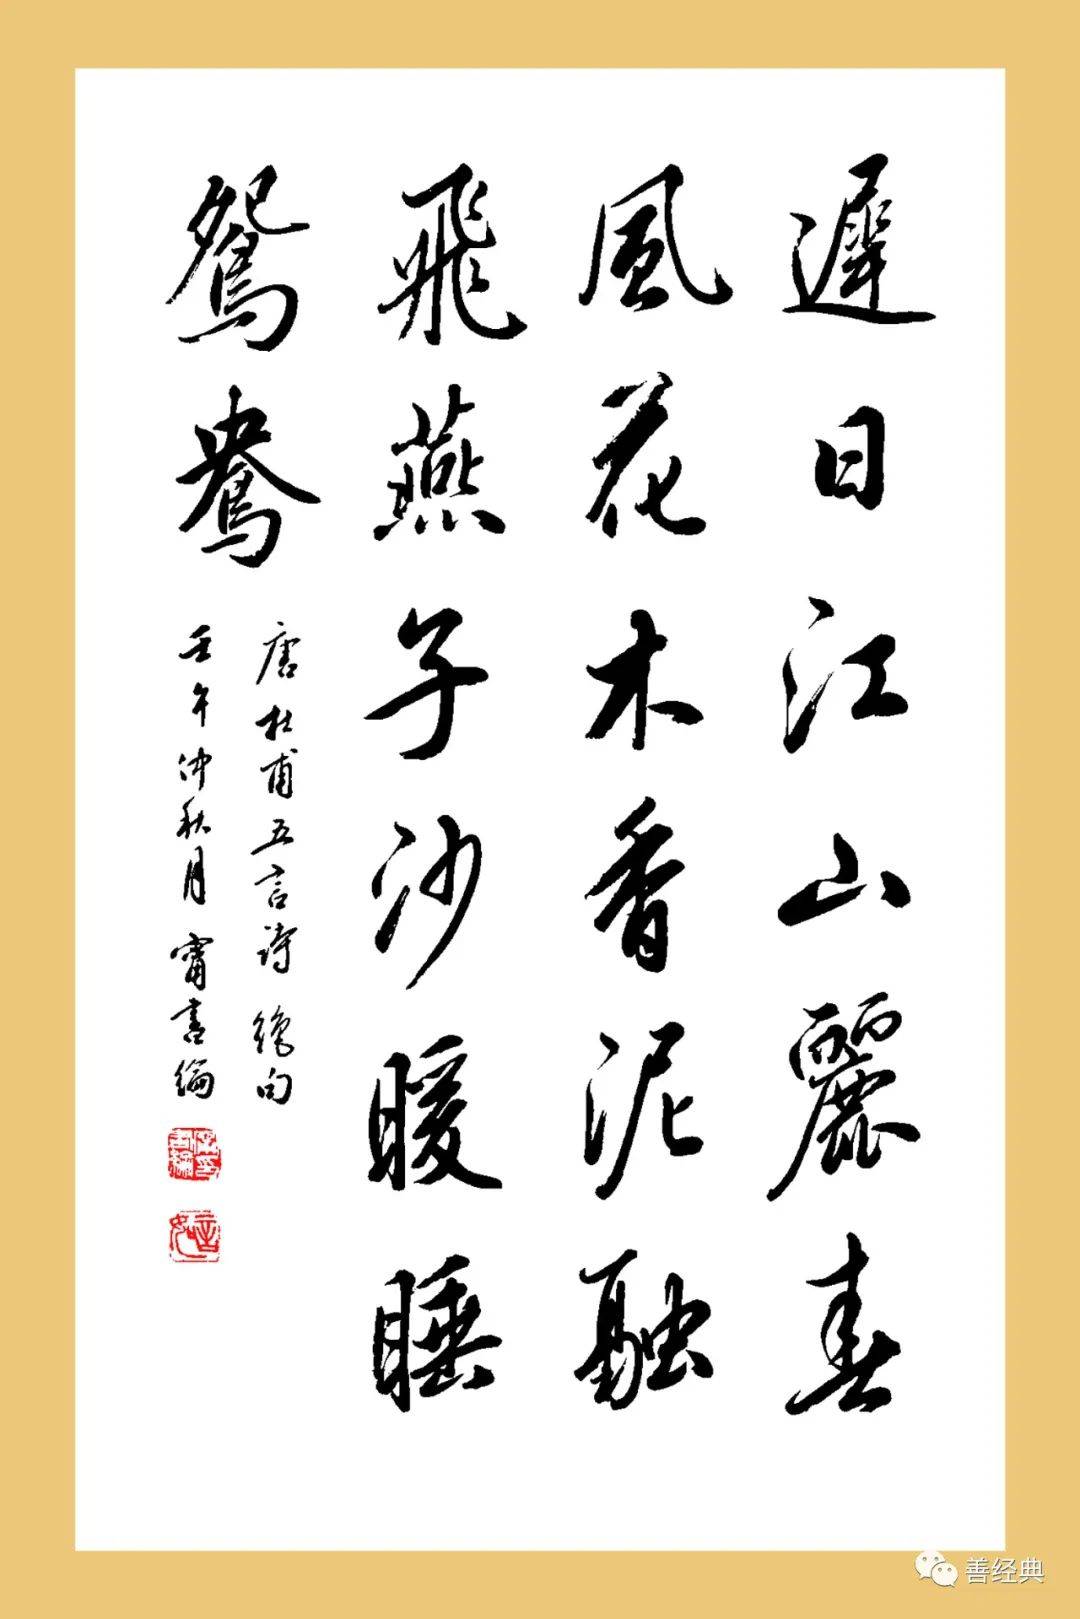 遲日江山麗春
風花木香泥融
飛燕子沙暖睡
鴛鴦
唐杜甫五言詩 絶句
壬午仲秋月 甯書綸
善经典